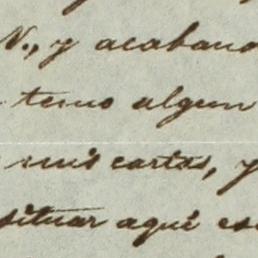 N., y acabano
temo algun
mis cartas, y
situar aquí es